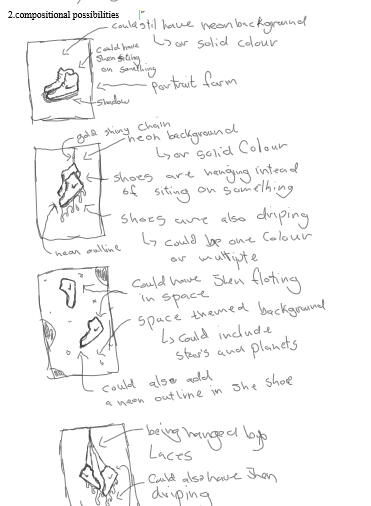 2.compositional possibilities
could stil have neon background
↳ or solid colour
could have
shen siting
on something
portrait farm
shadow
gold shiny chain
neon background
↳ or solid Colour
shoes are hanging intead
of siting on something
shoes are also driping
↳ could be one Colour
or multiple
neon outline
could have shen floting
in space
space themed background
↳ could include
stars and planets
could also add
a neon outline in the shoe
being hanged by
Laces
Could also have shen
driping